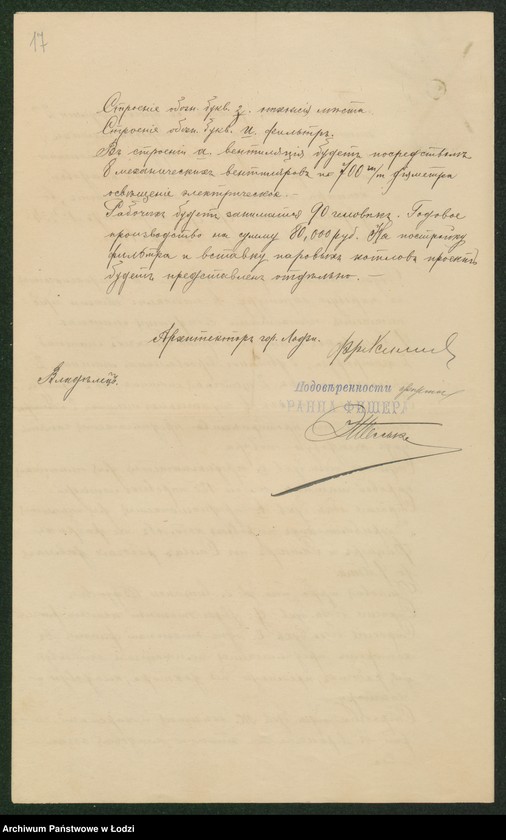 17
Строенiе обозн. букв. з. отхожiя мѣста.
Строенiе обозн. букв. и. фильтръ.
Въ строенiи а. вентиляцiя будетъ посредствомъ
8 механическихъ вентиляровъ по 700 м/м дiаметра
освѣщенiе электрическое. —
Рабочихъ будетъ заниматся 90 человѣкъ. Годовое
производство на сумму 80,000 руб. На постройку
фильтра и вставку паровыхъ котловъ проектъ
будетъ представленъ отдѣльно. —
Архитекторъ гор. Лодзи.
Владѣлецъ.
По довѣренности фирмы
ФРАНЦА ФИШЕРА
Archiwum Państwowe w Łodzi